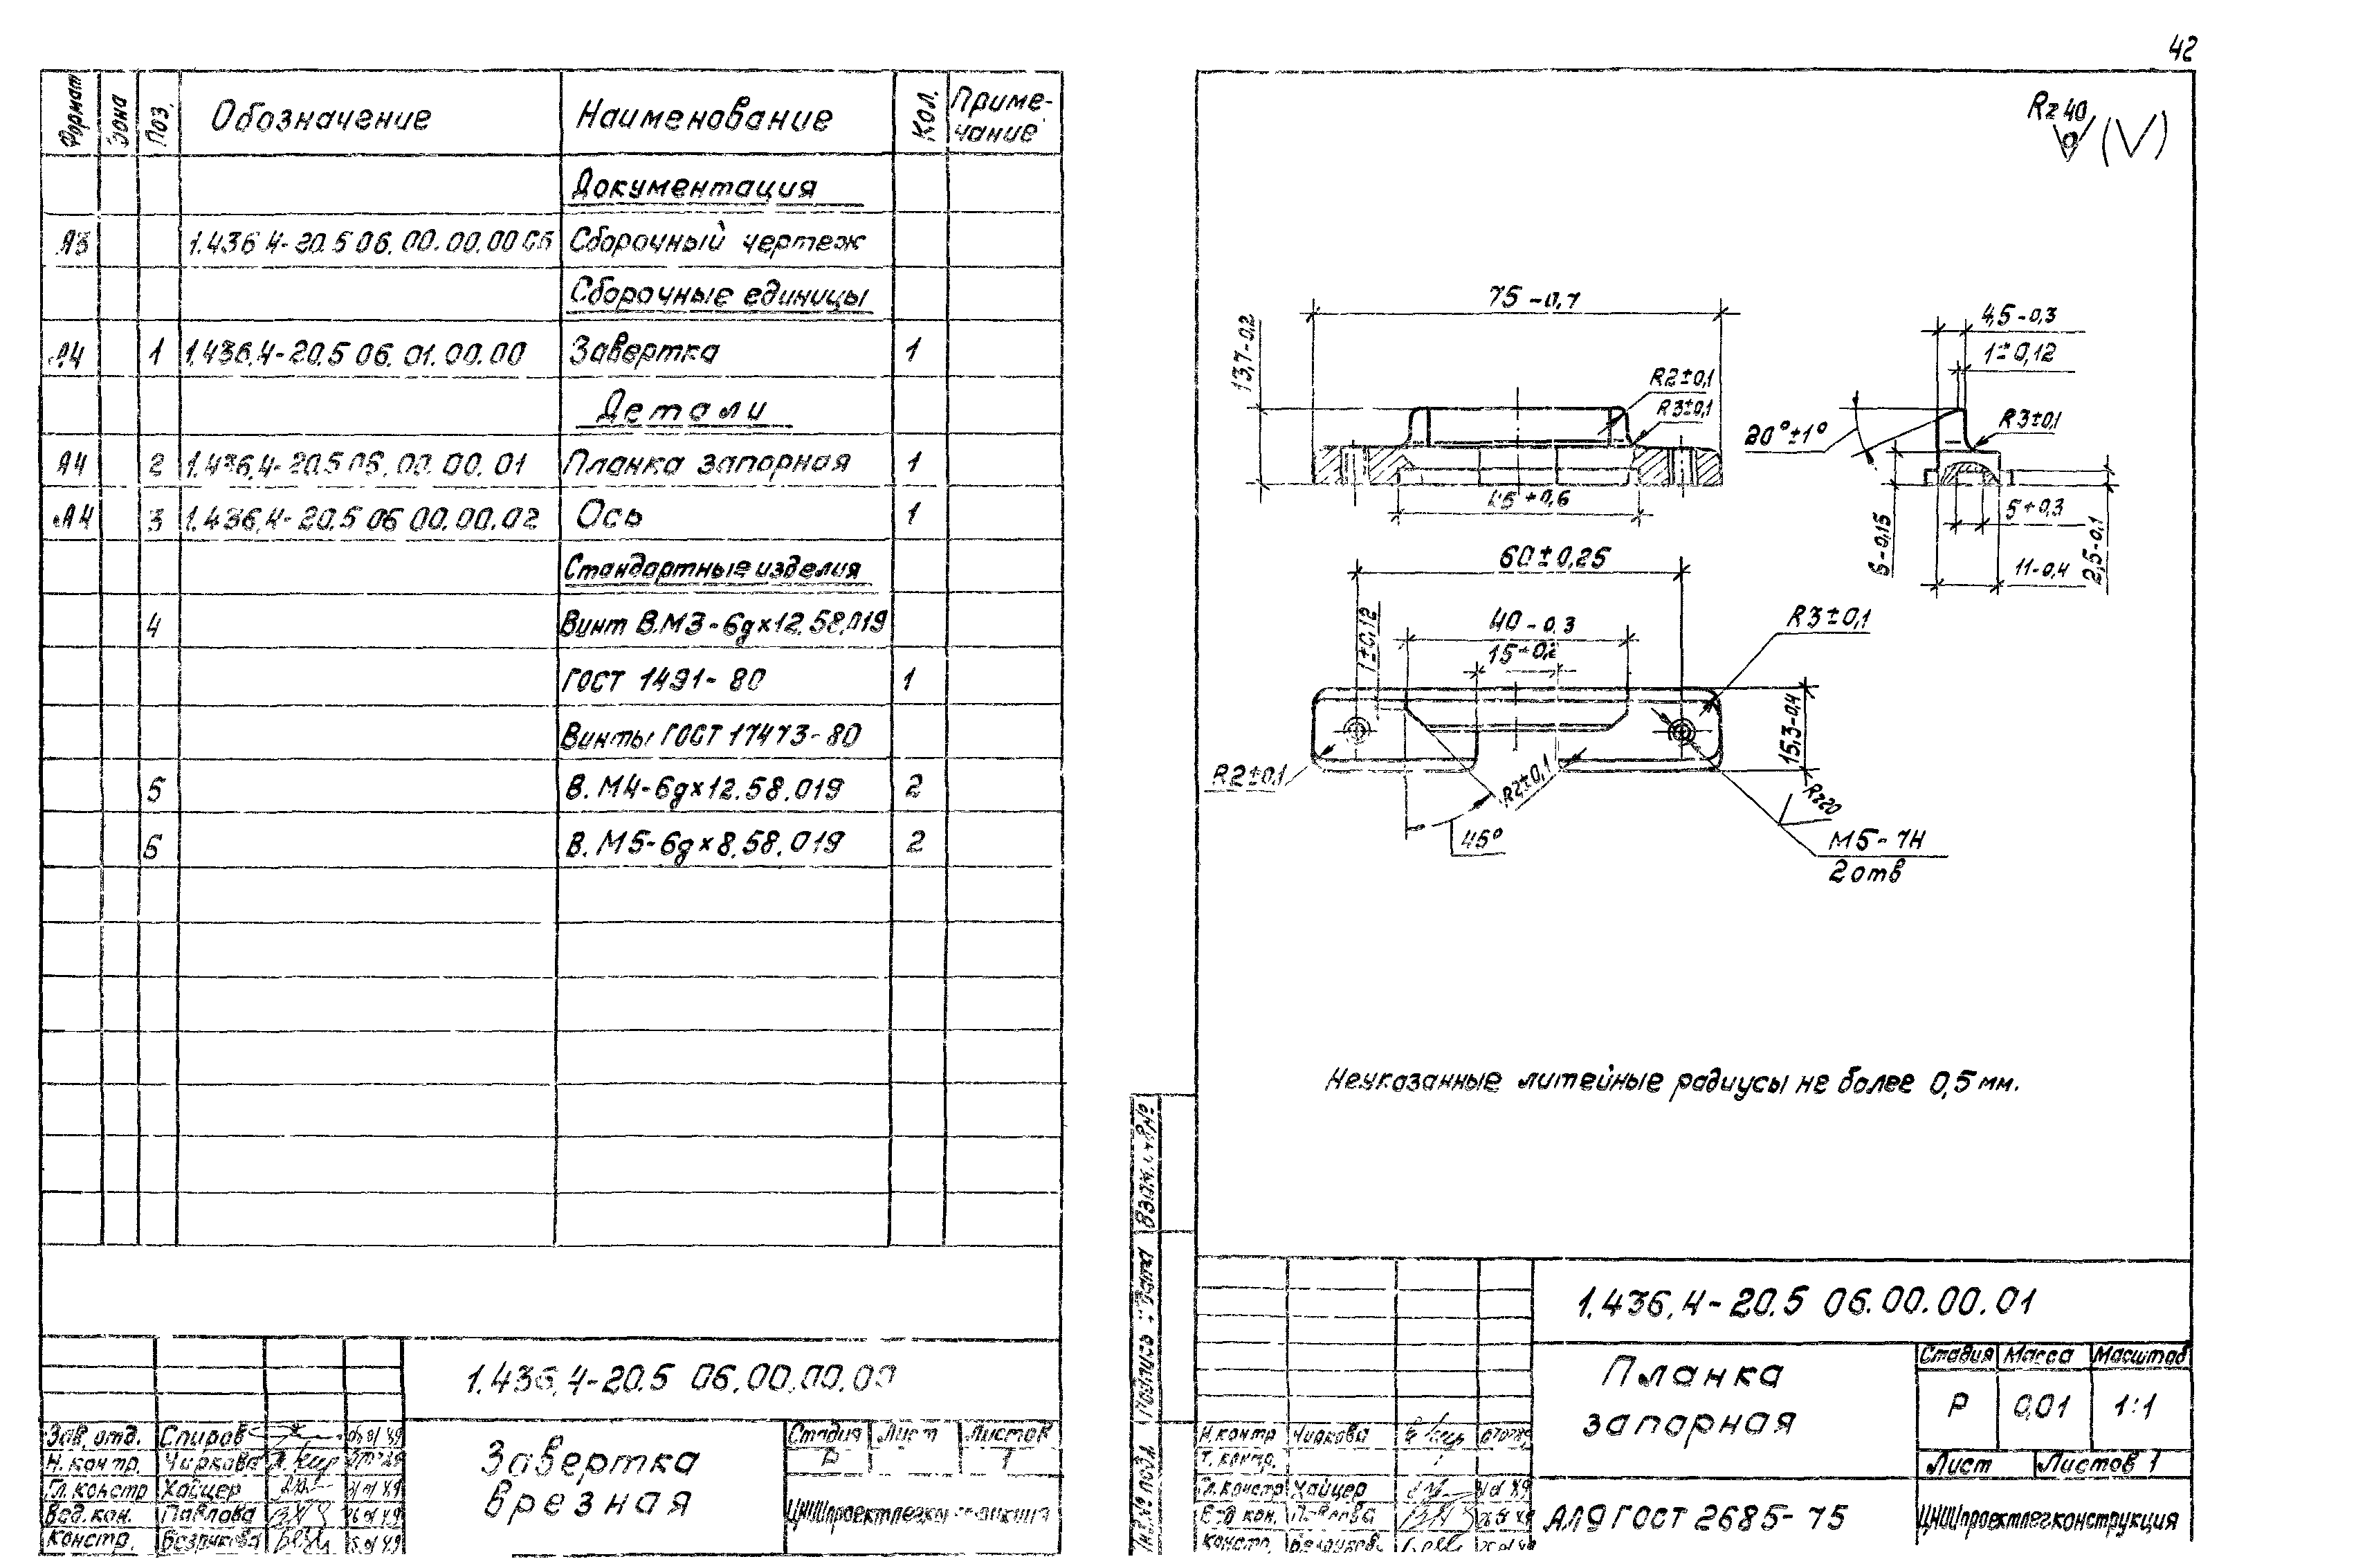 42
Формат Зона Поз. Обозначение Наименование Кол. Приме-
чание
Документация
А3 1.436.4-20.5 06.00.00.00 СБ Сборочный чертеж
Сборочные единицы
А4 1 1.436.4-20.5 06.01.00.00 Завертка 1
Детали
А4 2 1.436.4-20.5 06.00.00.01 Планка запорная 1
А4 3 1.436.4-20.5 06 00.00.02 Ось 1
Стандартные изделия
4 Винт В.М3-6g×12.58.019
ГОСТ 1491-80 1
Винты ГОСТ 17473-80
5 В. М4-6g×12.58.019 2
6 В. М5-6g×8.58.019 2
1.436.4-20.5 06.00.00.00
Зав. отд. Спиров
Н. контр. Чиркова
Гл. констр Хайцер
Вед. кон. Павлова
Констр.
Завертка
врезная
Стадия Лист Листов
Р 1
Rz 40
(√)
75-0,7
13,7-0,2
R2±0,1
R3±0,1
45+0,6
4,5-0,3
1±0,12
20°±1°
R3±0,1
6-0,15
5+0,3
11-0,4
2,5-0,1
60±0,25
40-0,3
15+0,2
1±0,12
R3±0,1
15,3-0,4
R2±0,1
R2±0,1
45°
Rz20
М5-7Н
2 отв
Неуказанные литейные радиусы не более 0,5 мм.
Взам. инв. №
Подпись и дата
Инв. № подл.
1.436.4-20.5 06.00.00.01
Н. контр Чиркова
Т. контр.
Гл. констр Хайцер
Вед кон. Павлова
Констр.
Планка
запорная
Стадия Масса Масштаб
Р 0,01 1:1
Лист Листов 1
АЛ9 ГОСТ 2685-75
ЦНИИпроектлегконструкция